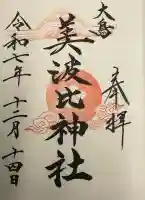 奉拝
大鳥
美波比神社
令和七年十二月十四日